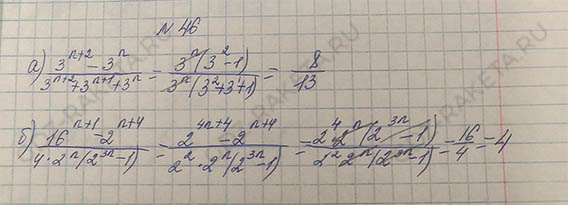 № 46
а) (3^{n+2} - 3^n)/(3^{n+2} + 3^{n+1} + 3^n) = 3^n(3^2 - 1)/3^n(3^2 + 3 + 1) = 8/13
б) (16^{n+1} - 2^{n+4})/(4 · 2^n(2^{3n} - 1)) = (2^{4n+4} - 2^{n+4})/(2^2 · 2^n(2^{3n} - 1)) = 2^4 · 2^n(2^{3n} - 1)/2^2 · 2^n(2^{3n} - 1) = 16/4 = 4